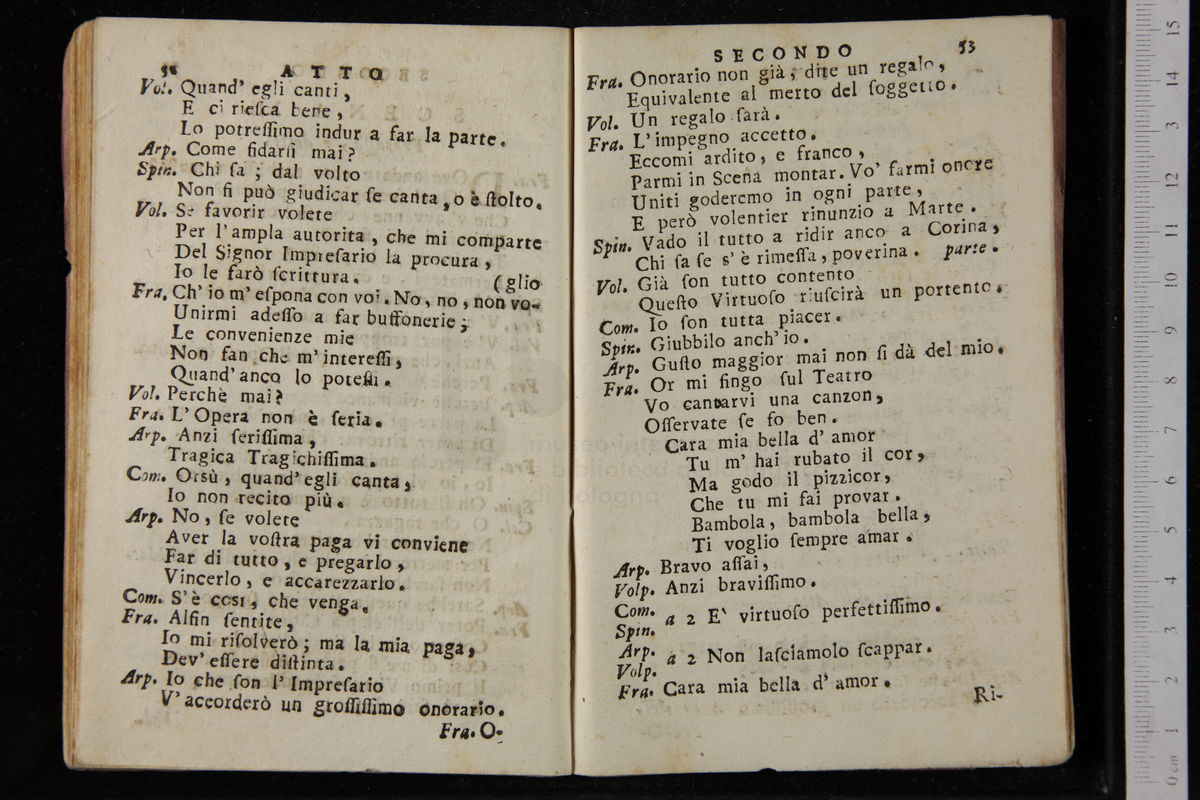 ATTO
Vol. Quand' egli canti,
E ci rieſca bene,
Lo potreſſimo indur a far la parte.
Arp. Come fidarſi mai?
Spin. Chi ſa; dal volto
Non ſi può giudicar ſe canta, o è ſtolto.
Vol. Se favorir volete
Per l'ampla autorita, che mi comparte
Del Signor Impreſario la procura,
Io le farò ſcrittura. (glio
Fra. Ch' io m' eſpona con voi. No, no, non vo-
Unirmi adeſſo a far buffonerie;
Le convenienze mie
Non fan che m' intereſſi,
Quand' anco lo poteſſi.
Vol. Perchè mai?
Fra. L' Opera non è ſeria.
Arp. Anzi ſeriſſima,
Tragica Tragichiſſima.
Com. Orsù, quand' egli canta,
Io non recito più.
Arp. No, ſe volete
Aver la voſtra paga vi conviene
Far di tutto, e pregarlo,
Vincerlo, e accarezzarlo.
Com. S'è così, che venga.
Fra. Alfin ſentite,
Io mi riſolverò; ma la mia paga,
Dev' eſſere diſtinta.
Arp. Io che ſon l' Impreſario
V' accorderò un groſſiſſimo onorario.
Fra. O-
SECONDO 53
Fra. Onorario non già; dite un regalo,
Equivalente al merto del ſoggetto.
Vol. Un regalo ſarà.
Fra. L' impegno accetto.
Eccomi ardito, e franco,
Parmi in Scena montar. Vo' farmi onore
Uniti goderemo in ogni parte,
E però volentier rinunzio a Marte.
Spin. Vado il tutto a ridir anco a Corina,
Chi ſa ſe s' è rimeſſa, poverina. parte.
Vol. Già ſon tutto contento
Queſto Virtuoſo riuſcirà un portento.
Com. Io ſon tutta piacer.
Spin. Giubbilo anch' io.
Arp. Guſto maggior mai non ſi dà del mio.
Fra. Or mi fingo ſul Teatro
Vo cantarvi una canzon,
Oſſervate ſe fo ben.
Cara mia bella d' amor
Tu m' hai rubato il cor,
Ma godo il pizzicor,
Che tu mi fai provar.
Bambola, bambola bella,
Ti voglio ſempre amar.
Arp. Bravo aſſai,
Volp. Anzi braviſſimo.
Com.
a 2 E' virtuoſo perfettiſſimo.
Spin.
Arp.
a 2 Non laſciamolo ſcappar.
Volp.
Fra. Cara mia bella d' amor.
Ri-